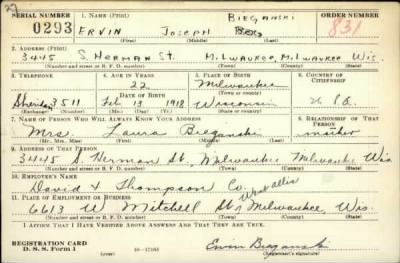 SERIAL NUMBER 1. NAME (Print) ORDER NUMBER
BIEGANSKI
0293 ERVIN JOSEPH 831
(First) (Middle) (Last)
2. ADDRESS (Print)
3445 S. HERMAN ST. MILWAUKEE, MILWAUKEE WIS.
(Number and street or R. F. D. number) (Town) (County) (State)
3. TELEPHONE 4. AGE IN YEARS 5. PLACE OF BIRTH 6. COUNTRY OF CITIZENSHIP
22 Milwaukee
DATE OF BIRTH (Town or county)
3511 Feb 13 1918 Wisconsin U.S.A.
(Exchange) (Number) (Mo.) (Day) (Yr.) (State or country)
7. NAME OF PERSON WHO WILL ALWAYS KNOW YOUR ADDRESS 8. RELATIONSHIP OF THAT PERSON
Mrs. Laura Bieganski mother
(Mr., Mrs., Miss) (First) (Middle) (Last)
9. ADDRESS OF THAT PERSON
3445 S. Herman St., Milwaukee Milwaukee Wis
(Number and street or R. F. D. number) (Town) (County) (State)
10. EMPLOYER'S NAME
David & Thompson Co.
West Allis
11. PLACE OF EMPLOYMENT OR BUSINESS
6613 W Mitchell St. Milwaukee, Wis.
(Number and street or R. F. D. number) (Town) (County) (State)
I AFFIRM THAT I HAVE VERIFIED ABOVE ANSWERS AND THAT THEY ARE TRUE.
REGISTRATION CARD
D. S. S. Form 1 Ervin Bieganski
(Registrant's signature)